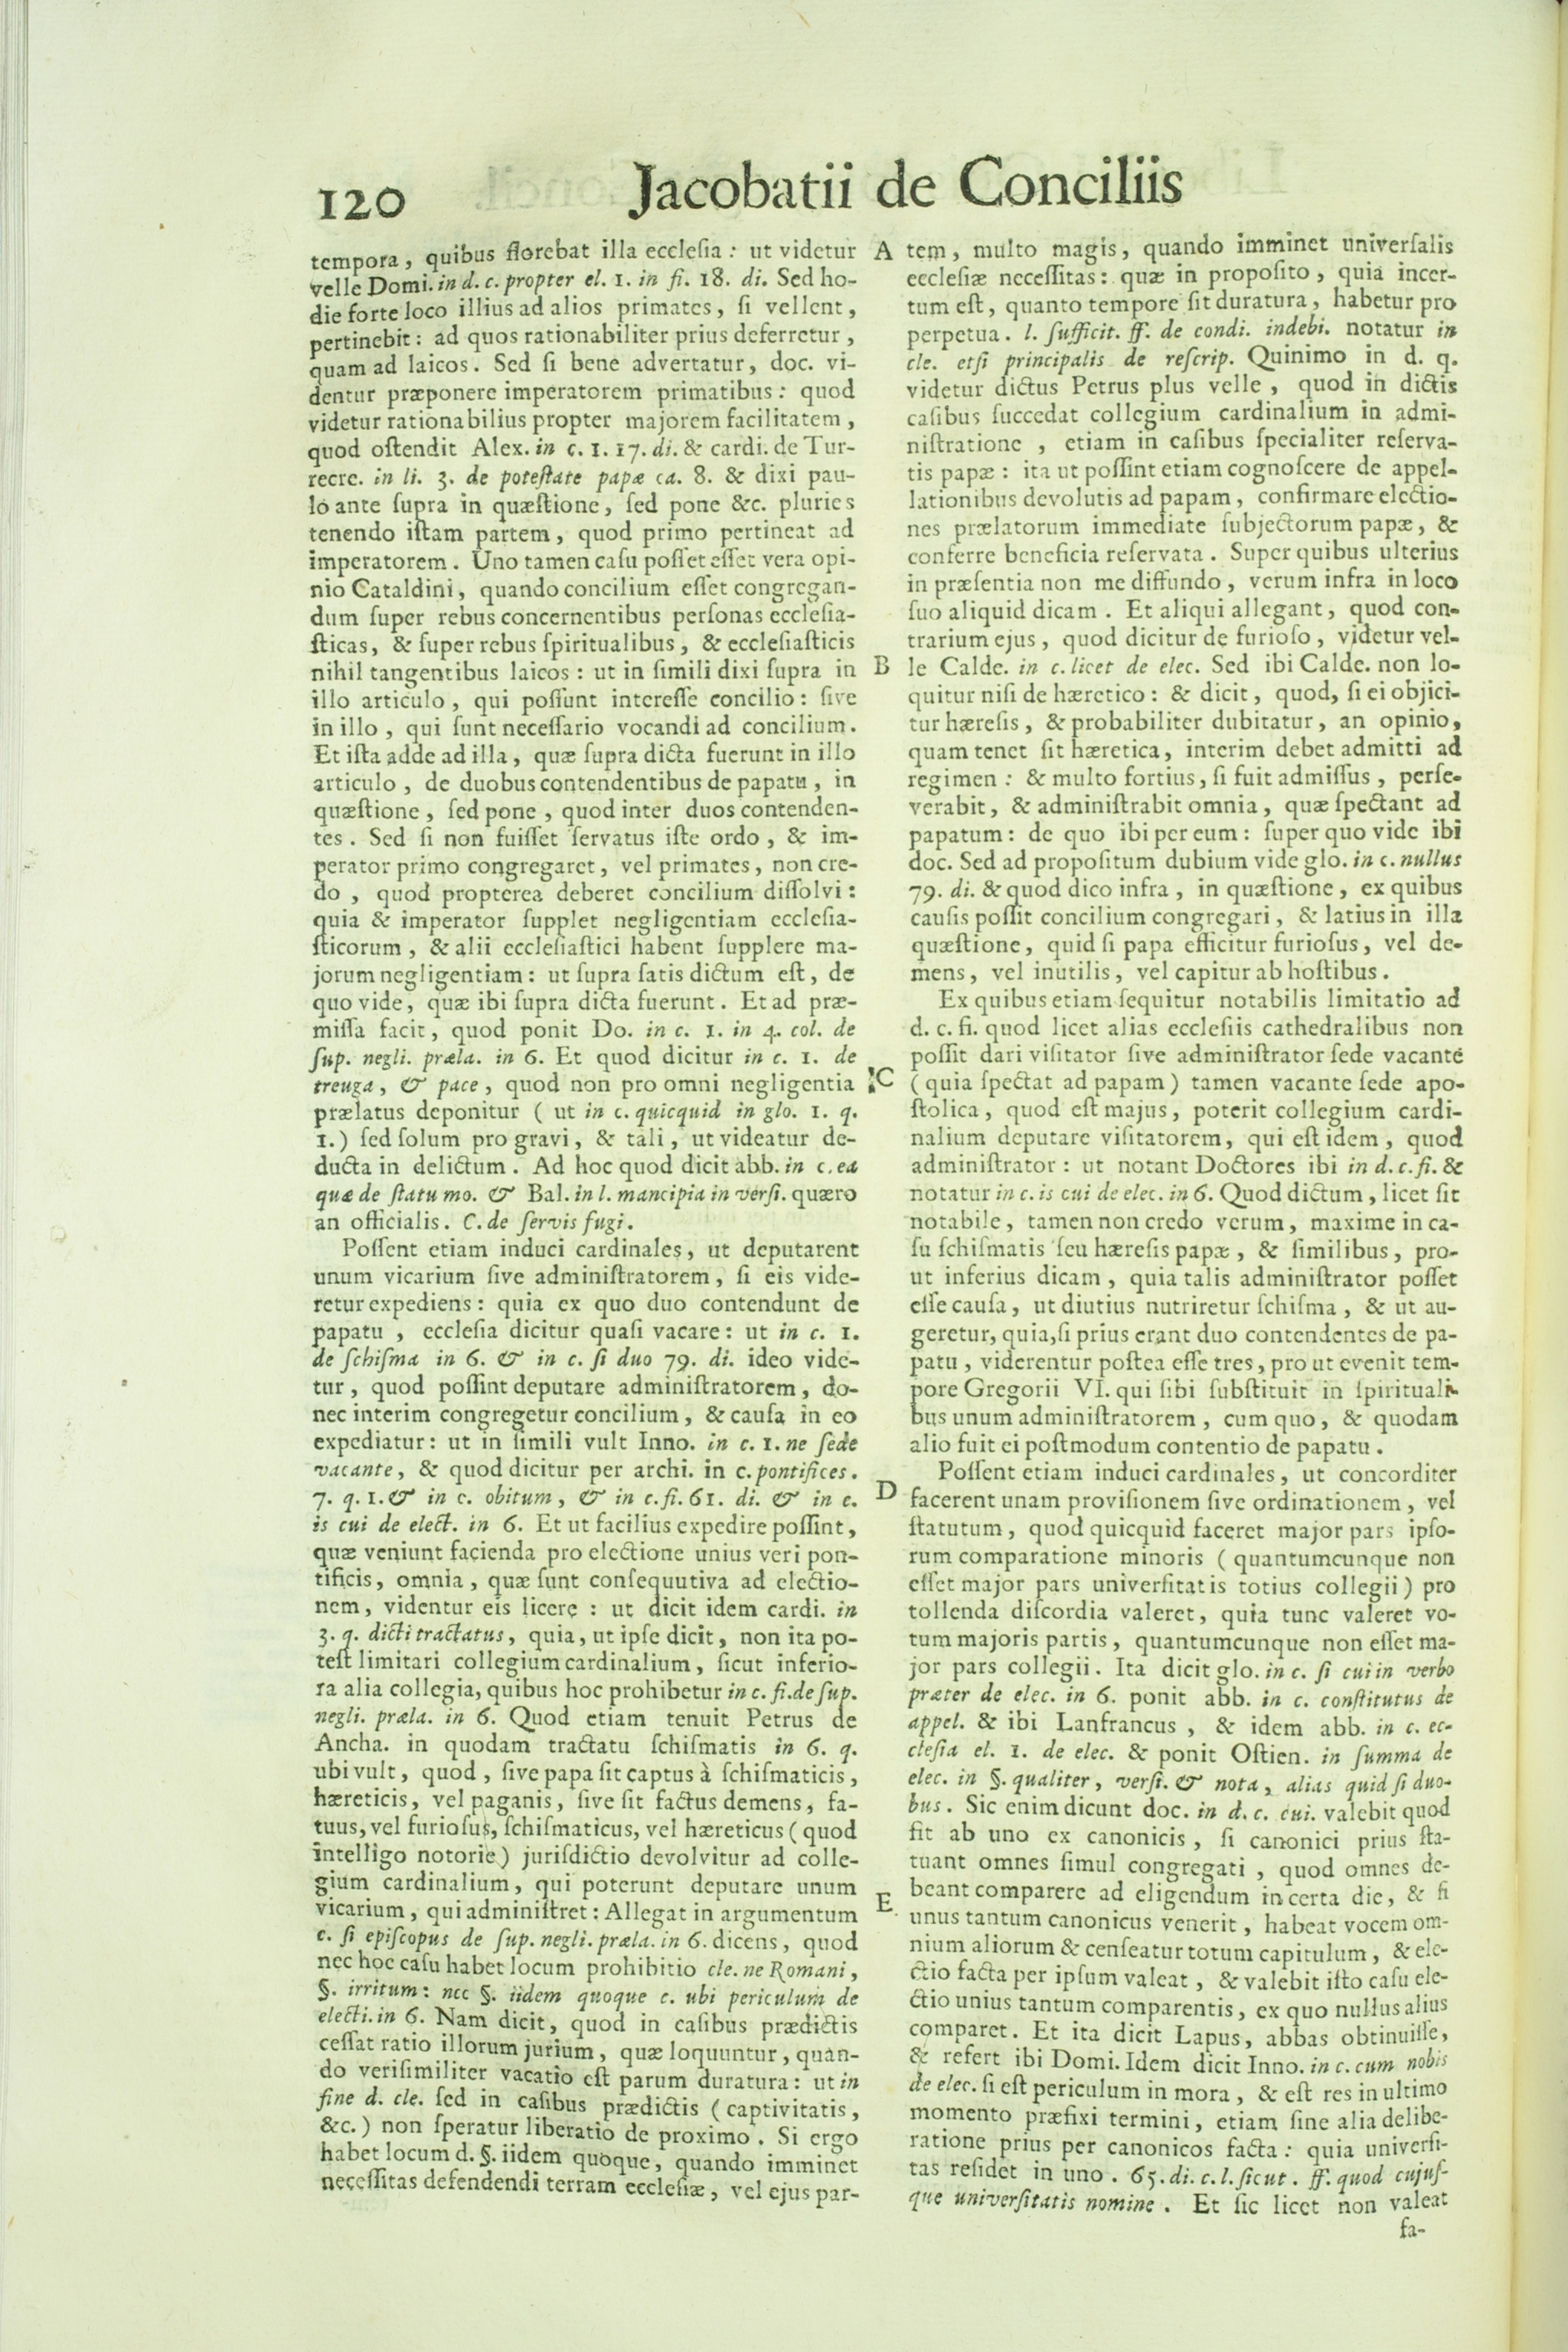 120
Jacobatii de Conciliis
tempora, quibus florebat illa ecclesia: ut videtur
velle Domi. in d. c. propter el. 1. in fi. 18. di. Sed ho-
die forte loco illius ad alios primates, si vellent,
pertinebit: ad quos rationabiliter prius deferretur,
quam ad laicos. Sed si bene advertatur, doc. vi-
dentur præponere imperatorem primatibus: quod
videtur rationabilius propter majorem facilitatem,
quod ostendit Alex. in c. 1. 17. di. & cardi. de Tur-
recre. in li. 3. de potestate papæ ca. 8. & dixi pau-
lo ante supra in quæstione, sed pone &c. pluries
tenendo istam partem, quod primo pertineat ad
imperatorem. Uno tamen casu posset esset vera opi-
nio Cataldini, quando concilium esset congregan-
dum super rebus concernentibus personas ecclesia-
sticas, & super rebus spiritualibus, & ecclesiasticis
nihil tangentibus laicos: ut in simili dixi supra in
illo articulo, qui possunt interesse concilio: sive
in illo, qui sunt necessario vocandi ad concilium.
Et ista adde ad illa, quæ supra dicta fuerunt in illo
articulo, de duobus contendentibus de papatu, in
quæstione, sed pone, quod inter duos contenden-
tes. Sed si non fuisset servatus iste ordo, & im-
perator primo congregaret, vel primates, non cre-
do, quod propterea deberet concilium dissolvi:
quia & imperator supplet negligentiam ecclesia-
sticorum, & alii ecclesiastici habent supplere ma-
jorum negligentiam: ut supra satis dictum est, de
quo vide, quæ ibi supra dicta fuerunt. Et ad præ-
missa facit, quod ponit Do. in c. 1. in 4. col. de
sup. negli. præla. in 6. Et quod dicitur in c. 1. de
treuga, & pace, quod non pro omni negligentia
prælatus deponitur (ut in c. quicquid in glo. 1. q.
1.) sed solum pro gravi, & tali, ut videatur de-
ducta in delictum. Ad hoc quod dicit abb. in c. ea
quæ de statu mo. & Bal. in l. mancipia in versi. quæro
an officialis. C. de servis fugi.
Possent etiam induci cardinales, ut deputarent
unum vicarium sive administratorem, si eis vide-
retur expediens: quia ex quo duo contendunt de
papatu, ecclesia dicitur quasi vacare: ut in c. 1.
de schisma in 6. & in c. si duo 79. di. ideo vide-
tur, quod possint deputare administratorem, do-
nec interim congregetur concilium, & causa in eo
expediatur: ut in simili vult Inno. in c. 1. ne sede
vacante, & quod dicitur per archi. in c. pontifices.
7. q. 1. & in c. obitum, & in c. fi. 61. di. & in c.
is cui de elect. in 6. Et ut facilius expedire possint,
quæ veniunt facienda pro electione unius veri pon-
tificis, omnia, quæ sunt consequutiva ad electio-
nem, videntur eis licere: ut dicit idem cardi. in
3. q. dicti tractatus, quia, ut ipse dicit, non ita po-
test limitari collegium cardinalium, sicut inferio-
ra alia collegia, quibus hoc prohibetur in c. fi. de sup.
negli. præla. in 6. Quod etiam tenuit Petrus de
Ancha. in quodam tractatu schismatis in 6. q.
ubi vult, quod, sive papa sit captus à schismaticis,
hæreticis, vel paganis, sive sit factus demens, fa-
tuus, vel furiosus, schismaticus, vel hæreticus (quod
intelligo notorie) jurisdictio devolvitur ad colle-
gium cardinalium, qui poterunt deputare unum
vicarium, qui administret: Allegat in argumentum
c. si episcopus de sup. negli. præla. in 6. dicens, quod
nec hoc casu habet locum prohibitio cle. ne Romani,
§. irritum: nec §. iidem quoque c. ubi periculum de
electi. in 6. Nam dicit, quod in casibus prædictis
cessat ratio illorum jurium, quæ loquuntur, quan-
do verisimiliter vacatio est parum duratura: ut in
fine d. cle. sed in casibus prædictis (captivitatis,
&c.) non speratur liberatio de proximo. Si ergo
habet locum d. §. iidem quoque, quando imminet
necessitas defendendi terram ecclesiæ, vel ejus par-
A
B
C
D
E
tem, multo magis, quando imminet universalis
ecclesiæ necessitas: quæ in proposito, quia incer-
tum est, quanto tempore sit duratura, habetur pro
perpetua. l. sufficit. ff. de condi. indebi. notatur in
cle. etsi principalis de rescrip. Quinimo in d. q.
videtur dictus Petrus plus velle, quod in dictis
casibus succedat collegium cardinalium in admi-
nistratione, etiam in casibus specialiter reserva-
tis papæ: ita ut possint etiam cognoscere de appel-
lationibus devolutis ad papam, confirmare electio-
nes prælatorum immediate subjectorum papæ, &
conferre beneficia reservata. Super quibus ulterius
in præsentia non me diffundo, verum infra in loco
suo aliquid dicam. Et aliqui allegant, quod con-
trarium ejus, quod dicitur de furioso, videtur vel-
le Calde. in c. licet de elec. Sed ibi Calde. non lo-
quitur nisi de hæretico: & dicit, quod, si ei objici-
tur hæresis, & probabiliter dubitatur, an opinio,
quam tenet sit hæretica, interim debet admitti ad
regimen: & multo fortius, si fuit admissus, perse-
verabit, & administrabit omnia, quæ spectant ad
papatum: de quo ibi per eum: super quo vide ibi
doc. Sed ad propositum dubium vide glo. in c. nullus
79. di. & quod dico infra, in quæstione, ex quibus
causis possit concilium congregari, & latius in illa
quæstione, quid si papa efficitur furiosus, vel de-
mens, vel inutilis, vel capitur ab hostibus.
Ex quibus etiam sequitur notabilis limitatio ad
d. c. fi. quod licet alias ecclesiis cathedralibus non
possit dari visitator sive administrator sede vacante
(quia spectat ad papam) tamen vacante sede apo-
stolica, quod est majus, poterit collegium cardi-
nalium deputare visitatorem, qui est idem, quod
administrator: ut notant Doctores ibi in d. c. fi. &
notatur in c. is cui de elec. in 6. Quod dictum, licet sit
notabile, tamen non credo verum, maxime in ca-
su schismatis seu hæresis papæ, & similibus, pro-
ut inferius dicam, quia talis administrator posset
esse causa, ut diutius nutriretur schisma, & ut au-
geretur, quia, si prius erant duo contendentes de pa-
patu, viderentur postea esse tres, pro ut evenit tem-
pore Gregorii VI. qui sibi substituit in spirituali-
bus unum administratorem, cum quo, & quodam
alio fuit ei postmodum contentio de papatu.
Possent etiam induci cardinales, ut concorditer
facerent unam provisionem sive ordinationem, vel
statutum, quod quicquid faceret major pars ipso-
rum comparatione minoris (quantumcunque non
esset major pars universitatis totius collegii) pro
tollenda discordia valeret, quia tunc valeret vo-
tum majoris partis, quantumcunque non esset ma-
jor pars collegii. Ita dicit glo. in c. si cui in verbo
præter de elec. in 6. ponit abb. in c. constitutus de
appel. & ibi Lanfrancus, & idem abb. in c. ec-
clesia el. 1. de elec. & ponit Ostien. in summa de
elec. in §. qualiter, versi. & nota, alias quid si duo-
bus. Sic enim dicunt doc. in d. c. cui. valebit quod
fit ab uno ex canonicis, si canonici prius sta-
tuant omnes simul congregati, quod omnes de-
beant comparere ad eligendum in certa die, & si
unus tantum canonicus venerit, habeat vocem om-
nium aliorum & censeatur totum capitulum, & ele-
ctio facta per ipsum valeat, & valebit isto casu ele-
ctio unius tantum comparentis, ex quo nullus alius
comparet. Et ita dicit Lapus, abbas obtinuisse,
& refert ibi Domi. Idem dicit Inno. in c. cum nobis
de elec. si est periculum in mora, & est res in ultimo
momento præfixi termini, etiam sine alia delibe-
ratione prius per canonicos facta: quia universi-
tas residet in uno. 65. di. c. l. sicut. ff. quod cujus-
que universitatis nomine. Et sic licet non valeat
fa-